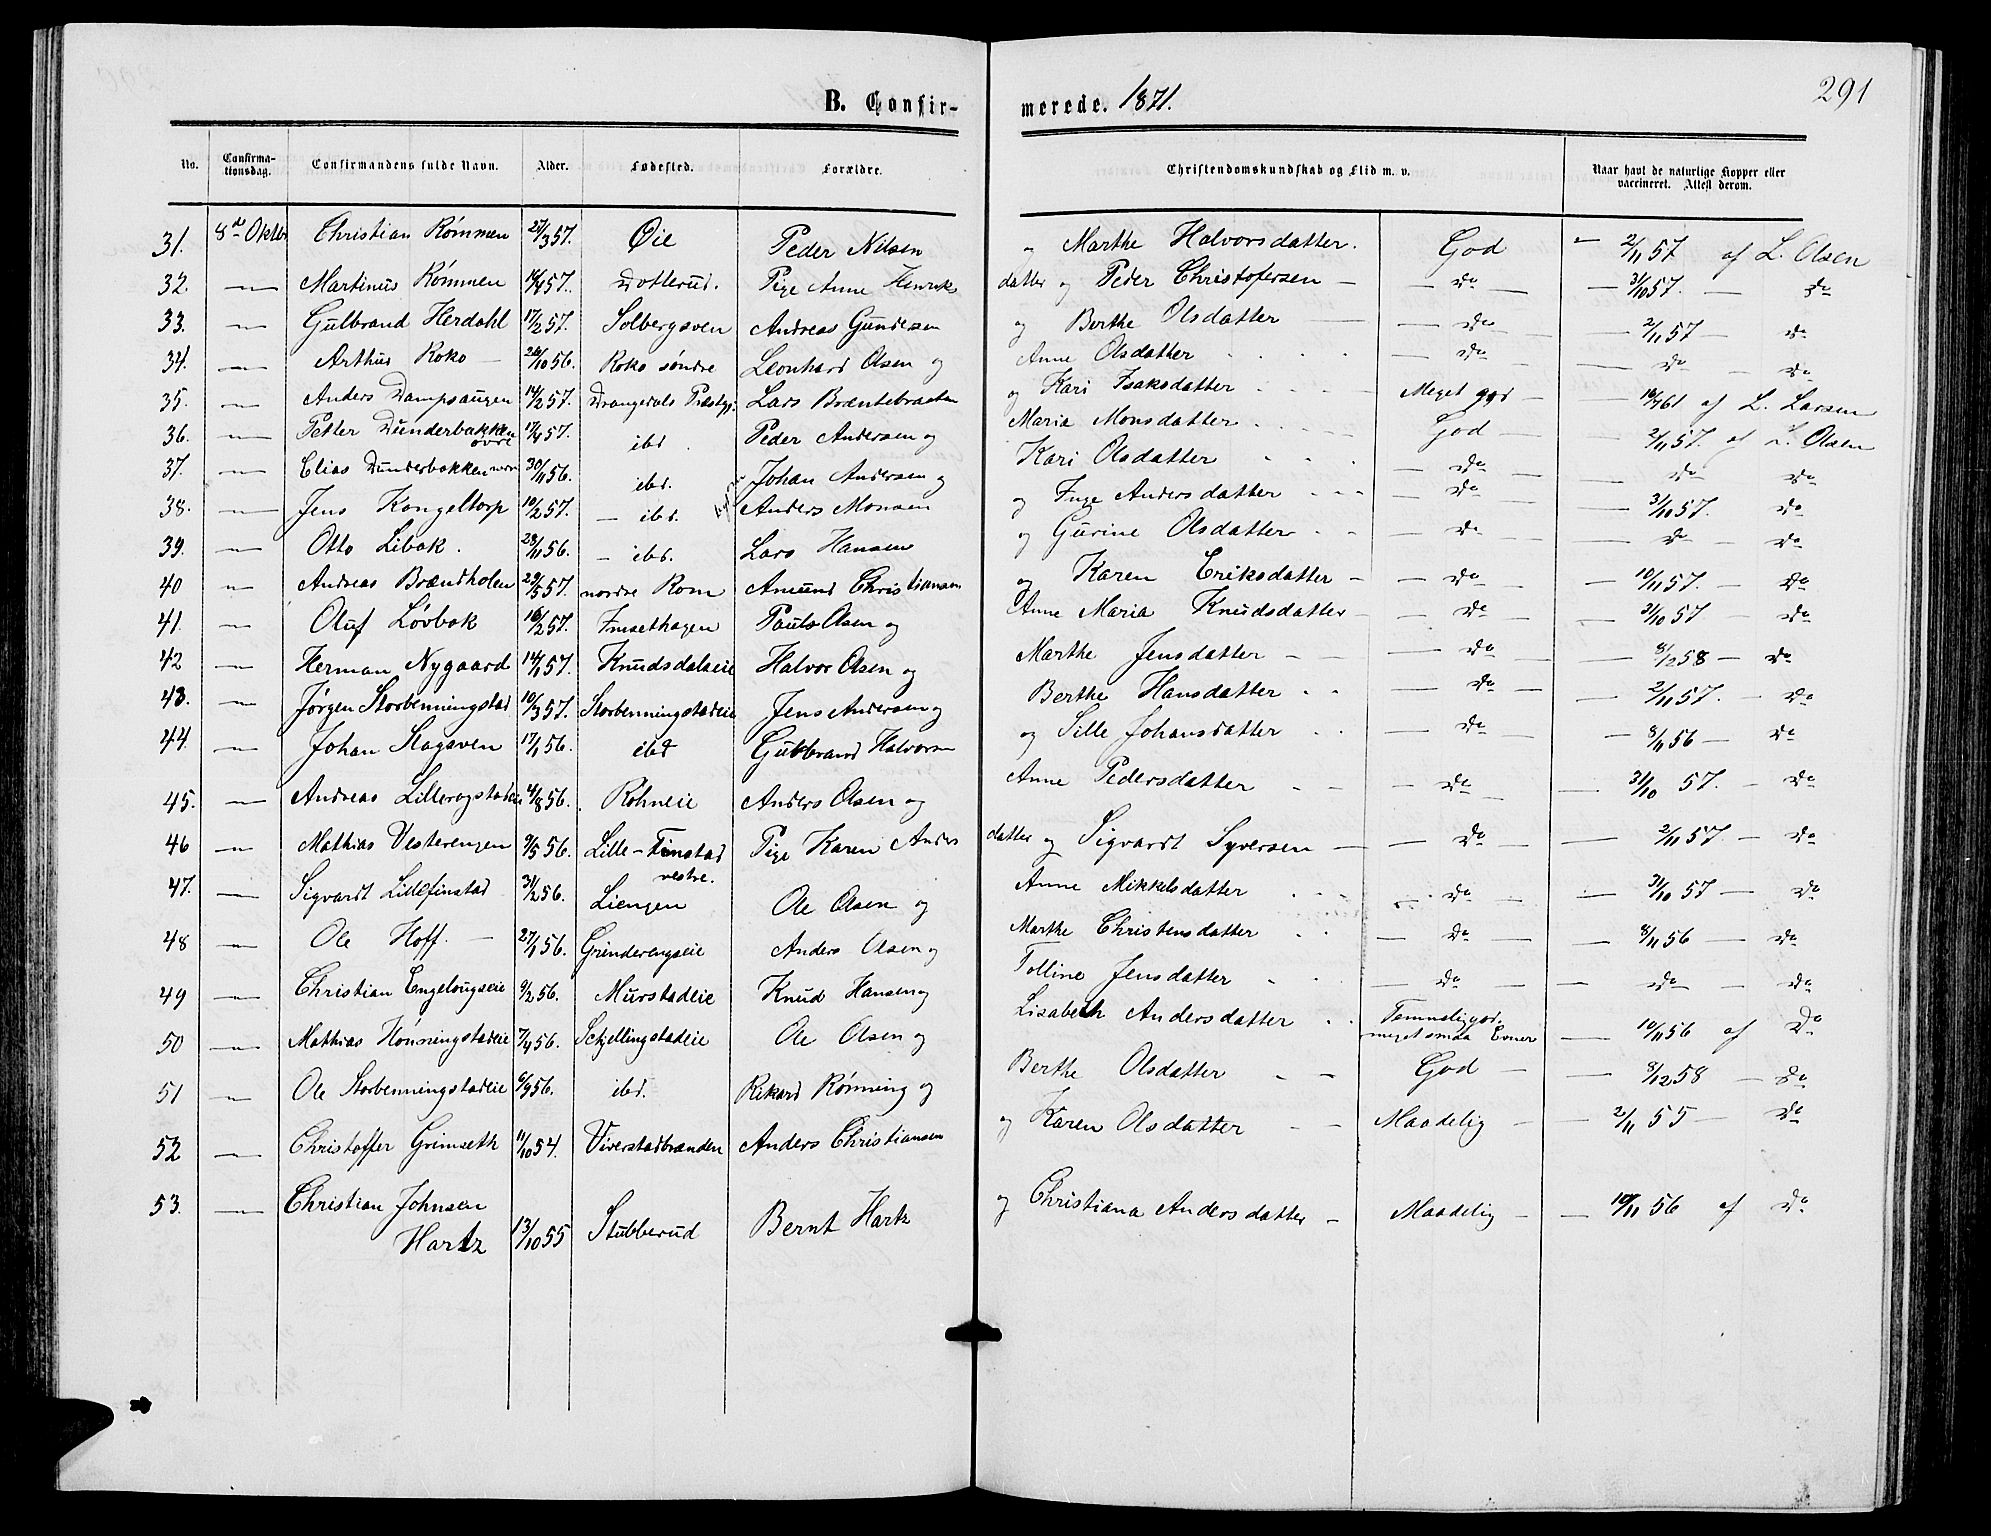 291
B. Confirmerede. 1871.
No. Confirmationsdag. Confirmandens fulde Navn. Alder. Fødested. Forældre. Christendomskundskab og Flid m. v. Naar havt de naturlige Kopper eller vaccineret. Attest derom.
31. 8de Oktbr Christian Rømmen 27/3 57. Øie Peder Nilsen og Marthe Halvorsdatter. God — 2/11 57 af L. Olsen
32. — Martinus Rømmen 57. Dotterud. Pige Anne Henriks datter og Peder Christofersen — — do — — 31/10 57. — do
33. — Gulbrand Herdahl 17/2 57. Solbergsven Andreas Gundersen og Berthe Olsdatter — — do — — 2/11 57 — do
34. — Arthur Roko — 28/10 56. Roko søndre Leonhard Olsen og Anne Olsdatter — do — do — do
35. — Anders Dampsaugen 14/2 57. Drangedals Præstgj. Lars Brænteb og Kari Isaksdatter Meget god — 61 af L. Larsen
36. — Petter Dunderbakken øvre 17/4 57. ibd. Peder Andersen og Maria Monsdatter God — 2/11 57. af L. Olsen
37. — Elias Dunderbakken 30/11 56. ibd. Johan Andersen og Kari Olsdatter — do — do do
38. — Jens Kongeltorp 10/2 57. — ibd. Anders Monsen og Inge Andersdatter — do — 31/10 57. do
39. — Otto Libak. 28/11 56. — ibd. Lars Hansen og Gurine Olsdatter — do — do — do
40 — Andreas Brændholen 29/5 57. nordre Rom Amund Christiansen og Karen Eriksdatter — — do — — 10/11 57. — do
41. — Oluf Løvbak 16/2 57. Imsethagen Paul Olsen og Anne Maria Knudsdatter — — do — — 31/10 57 — do
42 — Herman Nygaard 57. Knudsdalseie Halvor Olsen og Marthe Jensdatter — — do — — 8/12 58 — do
43. — Jørgen Storbenningstad 10/3 57. Storbenningstadeie Jens Andersen og Berthe Hansdatter — do — — 2/11 57. — do
44. — Johan Stagsven 17/1 56. ibd Gulbrand Halvorsen og Sille Johansdatter — do — — 8/11 56 — do
45. — Andreas Lillerogstadeie 4/8 56. Rohneie Anders Olsen og Anne Pedersdatter — do — — 31/10 57. — do
46 — Mathias Vesterengen 9/5 56. Lille-Finstad vestre. Pige Karen Anders datter og Sigvardt Syversen — — do — — 2/11 57 — do
47. — Sigvardt Lillefinstad 31/2 56. Liengen Ole Olsen og Anne Mikkelsdatter — do — — 31/10 57 — do
48 — Ole Hoff. — 27/1 56. Grinderengseie Anders Olsen og Marthe Christensdatter — do — — 8/11 56 — do
49 — Christian Engelougseie 9/2 56. Murstadeie Knud Hansen og Tolline Jensdatter — do — — do — do
50 — Mathias Hønningstadeie 7/4 56. Schjellingstadeie Ole Olsen og Lisabeth Andersdatter Temmelig god. meget smaa Evner — 10/11 56 af do
51 — Ole Storbenningstadeie 6/9 56. ibd. Rikard Rønning og Berthe Olsdatter — God — — 8/12 58 — do
52 — Christoffer Grimseth 11/10 54. Viverstadbrænden Anders Christiansen og Karen Olsdatter — Maadelig — — 2/11 55 — do
53. — Christian Johnsen Hartz 13/10 55 Stubberud Bernt Hartz og Christiana Andersdatter — Maadelig — — 10/11 56 af do